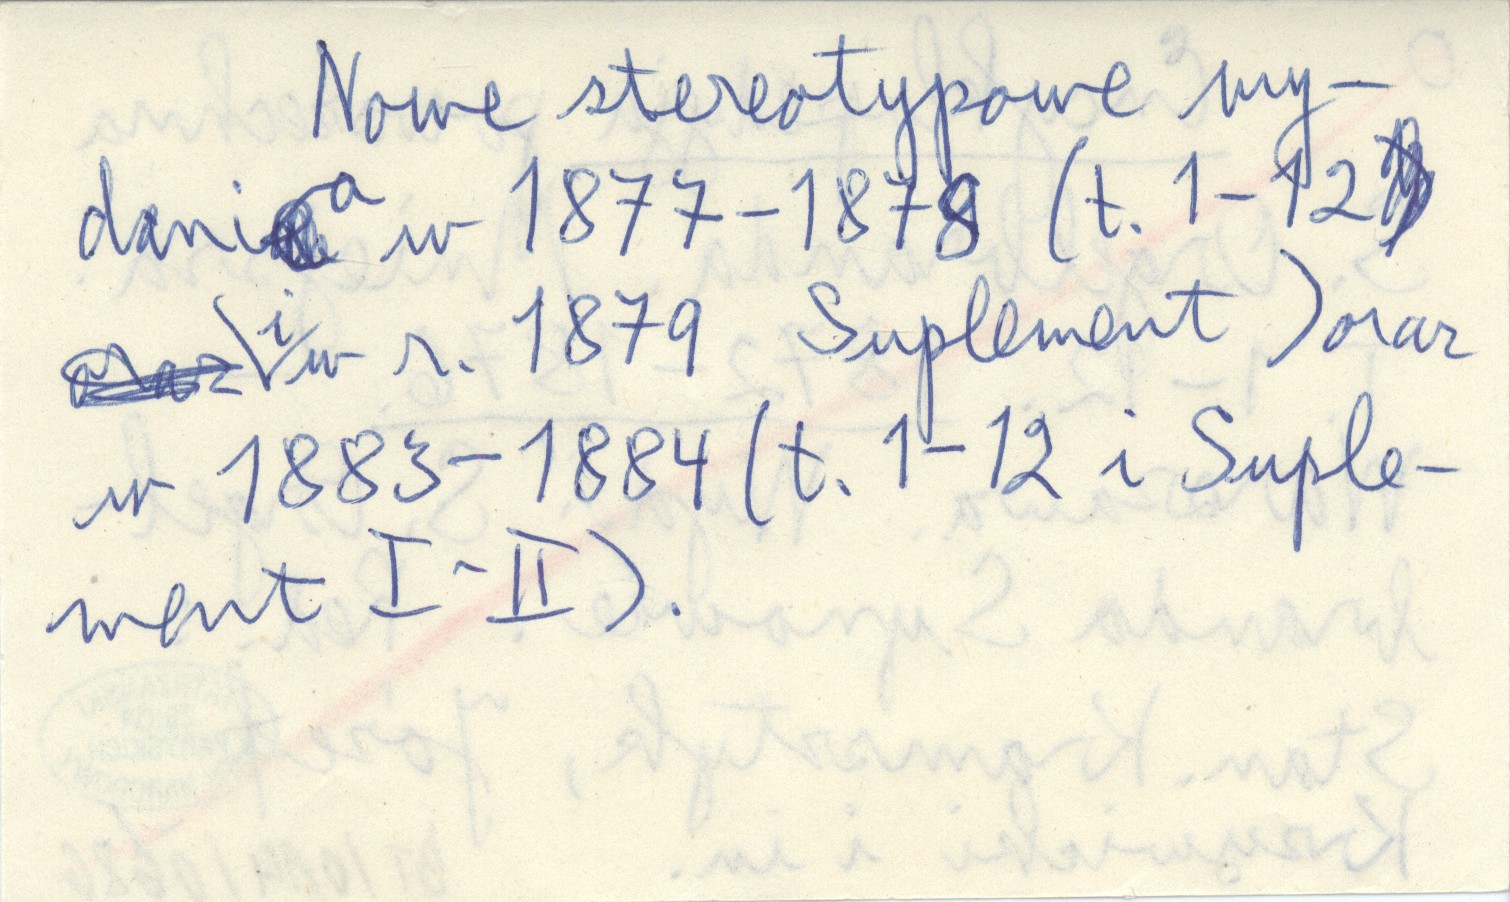 Nowe stereotypowe wy-
dania w 1877-1878 (t. 1-12
i w r. 1879 Suplement) oraz
w 1883-1884 (t. 1-12 i Suple-
ment I-II).